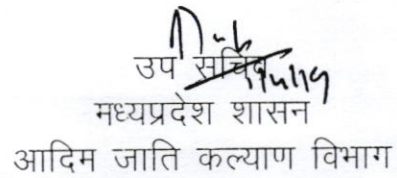 उप सचिव
मध्यप्रदेश शासन
आदिम जाति कल्याण विभाग